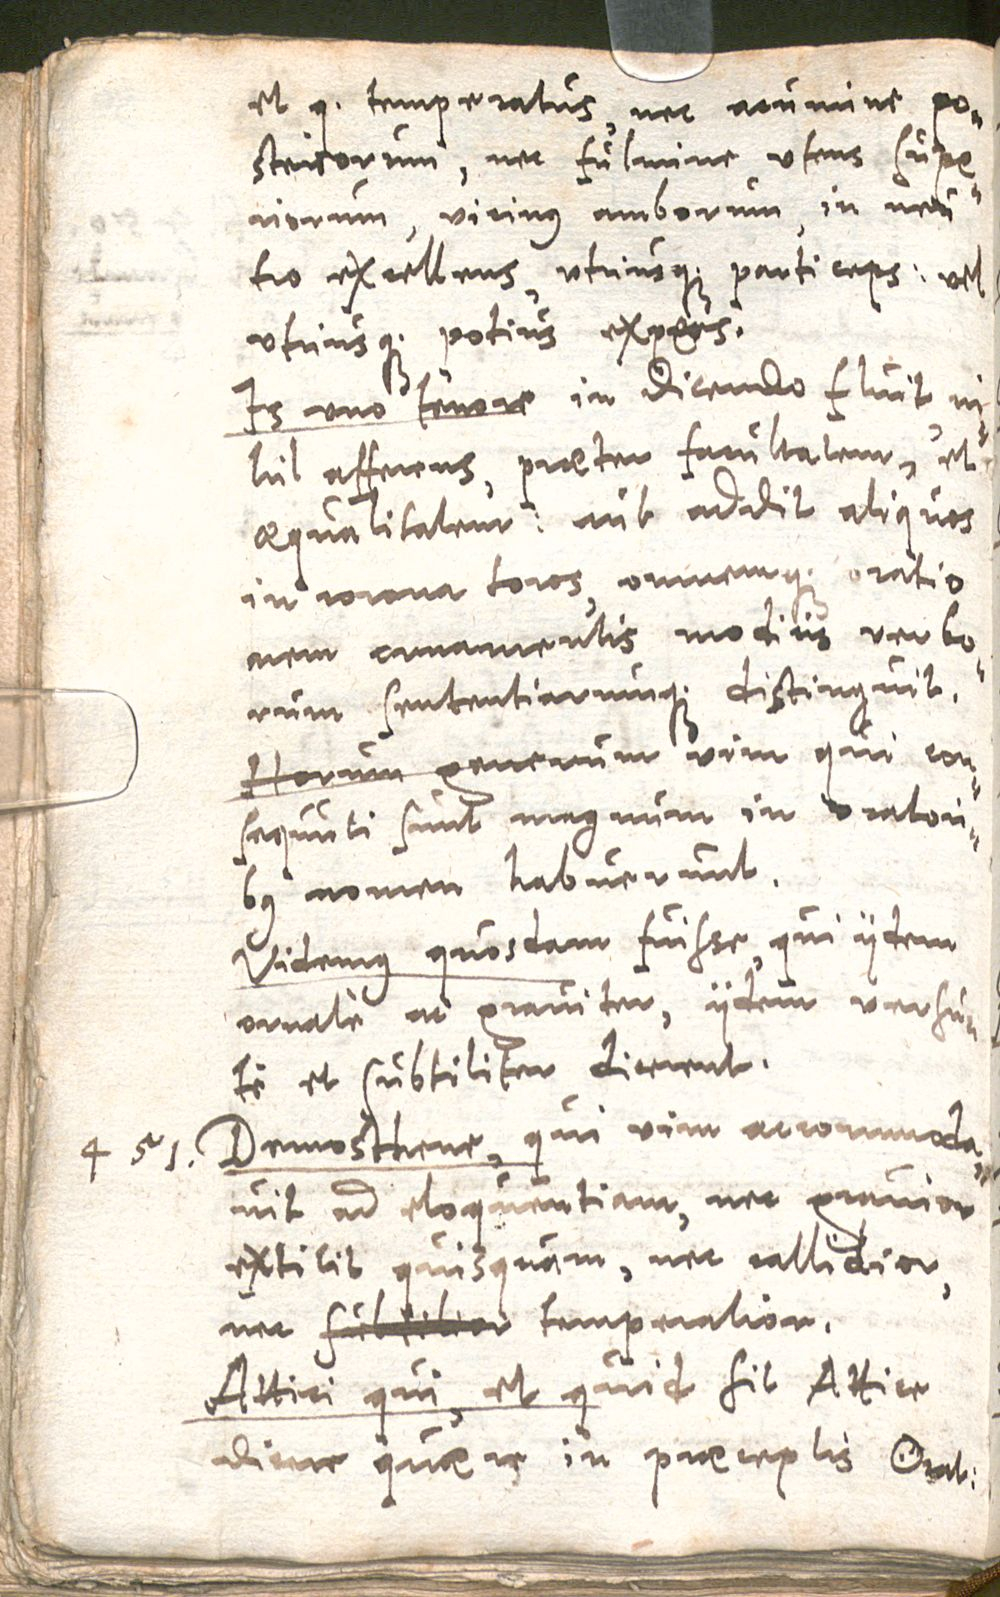 et q. temperatus, nec acumine po„
steriorum, nec fulmine vtens supe„
riorum, vicinꝯ amborum, in neu„
tro excellens, vtriusqꝫ particeps: vel
vtriusqꝫ potius expers.
Is vno tenore in dicendo fluit, ni„
hil afferens, præter facultatem, et
æqualitatem: aut addit aliquos
in corona toros, omnemqꝫ oratio
nem ornamentis modicis verbo„
rum sententiarumqꝫ distinguit.
Horum generum vim qui con„
sequuti sunt magnum in oratori„
bꝯ nomen habuerunt.
Videmꝯ quosdam fuisse, qui ijdem
ornatè ac grauiter, ijdem versu„
tè et subtiliter dicerent.
4 51. Demosthene, qui vim accommoda„
uit ad eloquentiam, nec grauior
extitit quisquam, nec callidior,
nec subtilior temperatior.
Attici qui, et quid sit Attice
dicere quære in præceptis Orat: